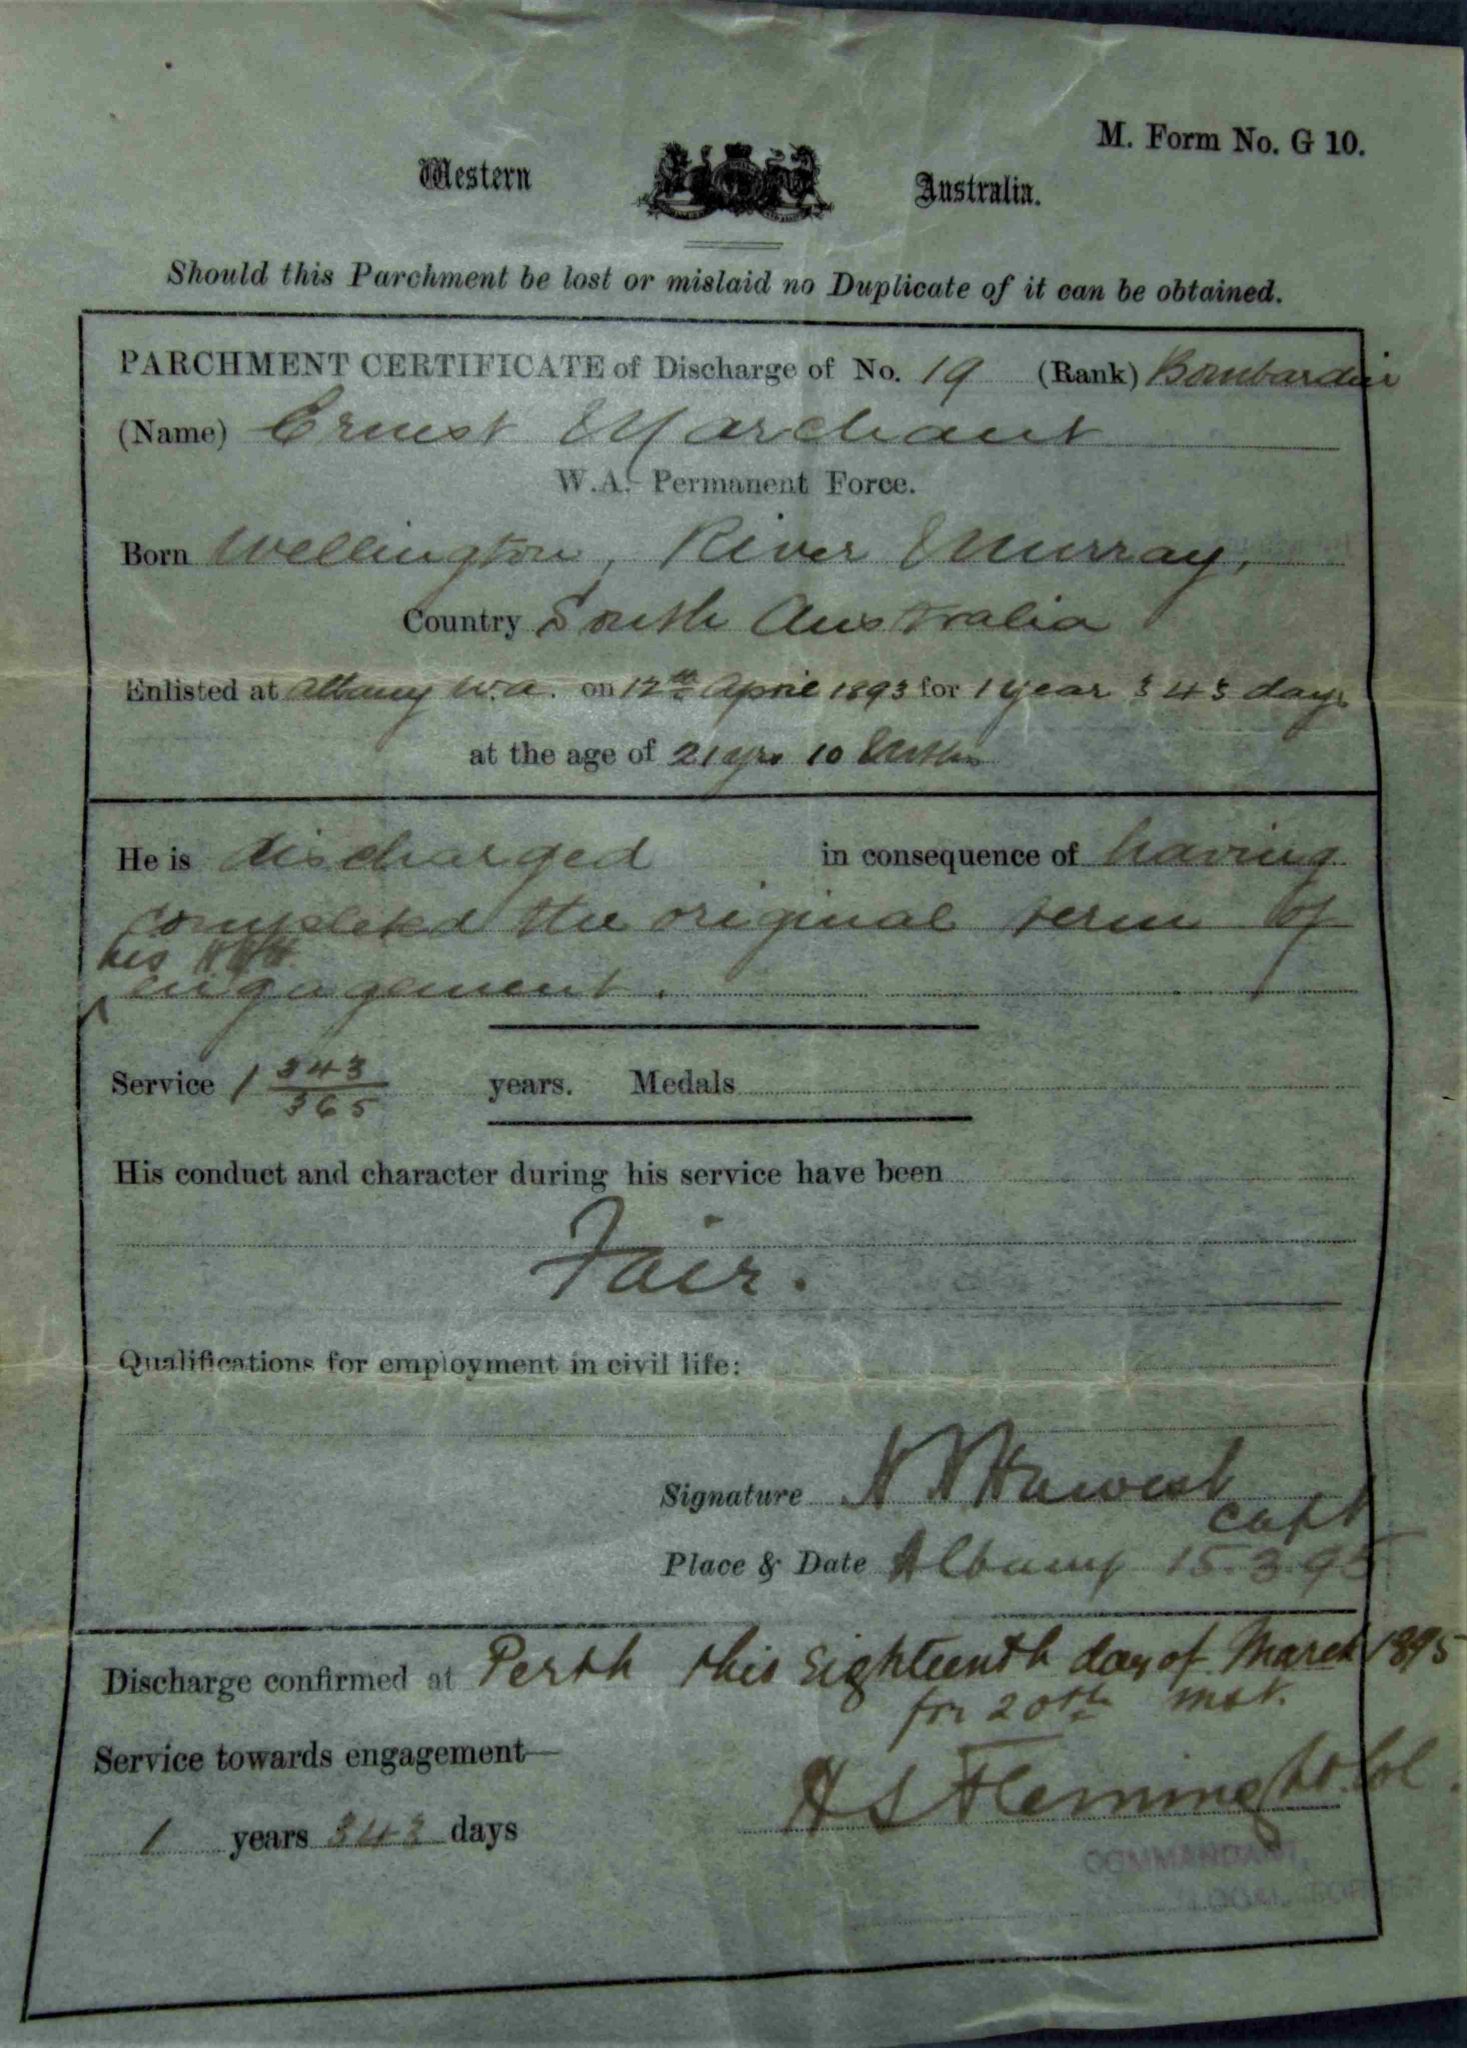 M. Form No. G 10.
Western Australia.
Should this Parchment be lost or mislaid no Duplicate of it can be obtained.
PARCHMENT CERTIFICATE of Discharge of No. 19 (Rank) Bombardier
(Name) Ernest Marchant
W.A. Permanent Force.
Born Wellington, River Murray,
Country South Australia
Enlisted at Albany W.A. on 12th April 1893 for 1 year 343 days
at the age of 21 yrs 10 Mths
He is discharged in consequence of having
completed the original term of
his
engagement.
Service 1 343/365 years. Medals
His conduct and character during his service have been
Fair.
Qualifications for employment in civil life:
Signature
Capt
Place & Date Albany 15.3.95
Discharge confirmed at Perth this eighteenth day of March 1895
for 20th inst.
Service towards engagement—
H S Fleming Lt. Col.
1 years 343 days
COMMANDANT,
LOCAL FORCES